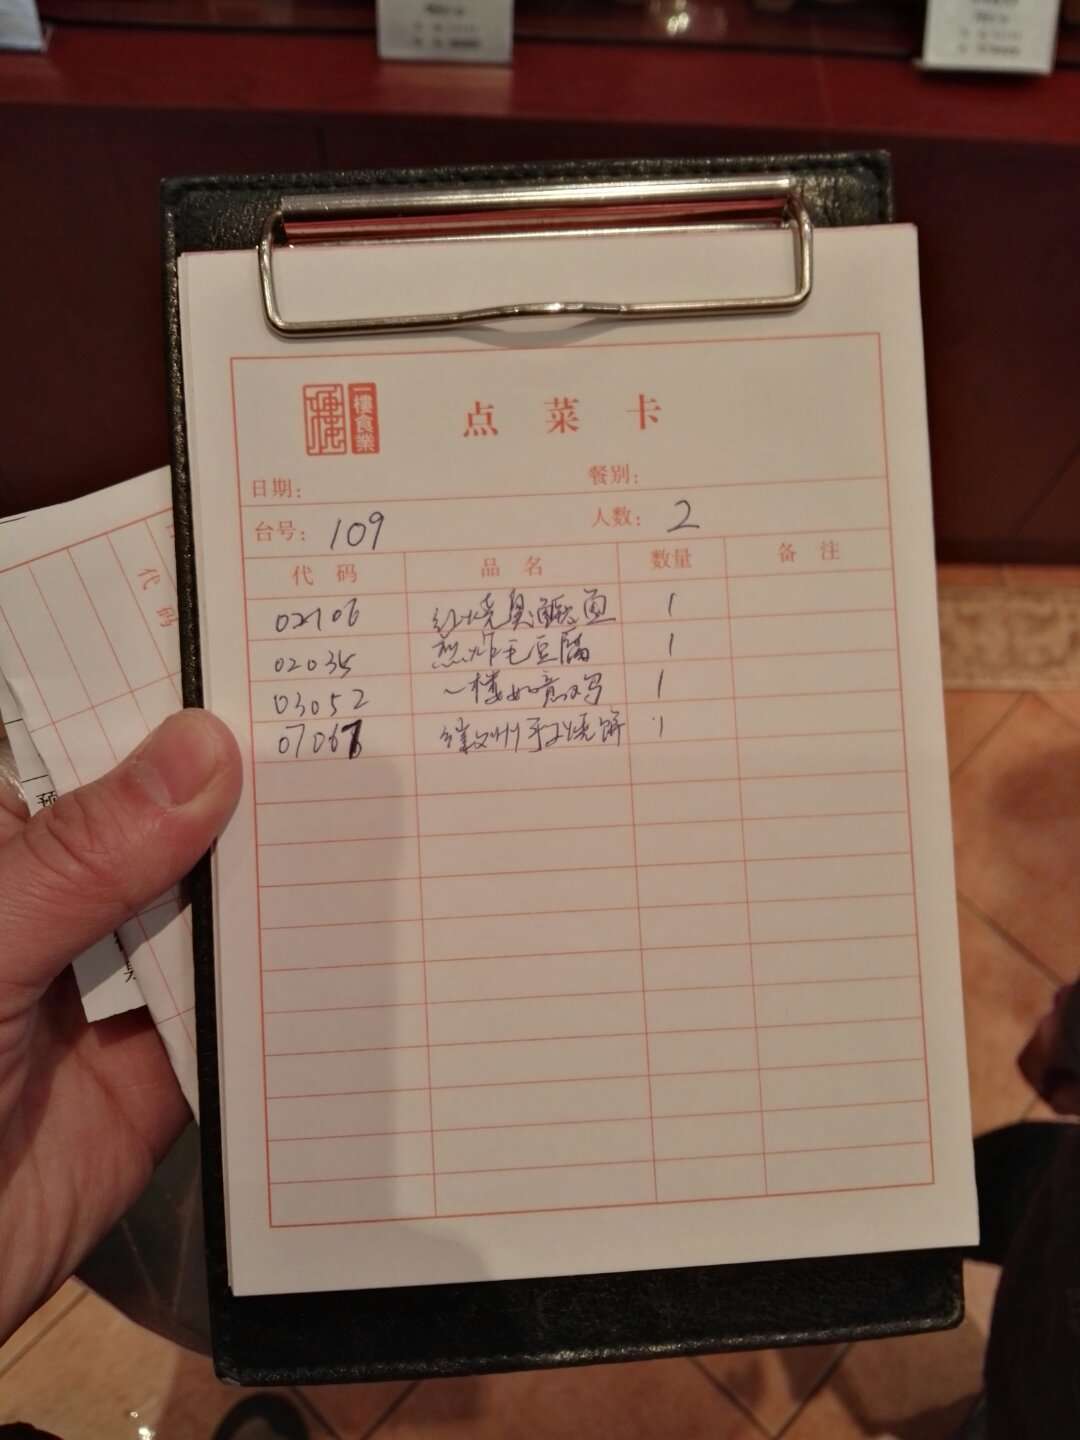 一樓食業
点菜卡
日期： 餐别：
台号： 109 人数： 2
代码 品名 数量 备注
02106 红烧臭鳜鱼 1
02035 煎炸毛豆腐 1
03052 一楼如意鸡 1
07067 徽州手撕烧饼 1
代码
预